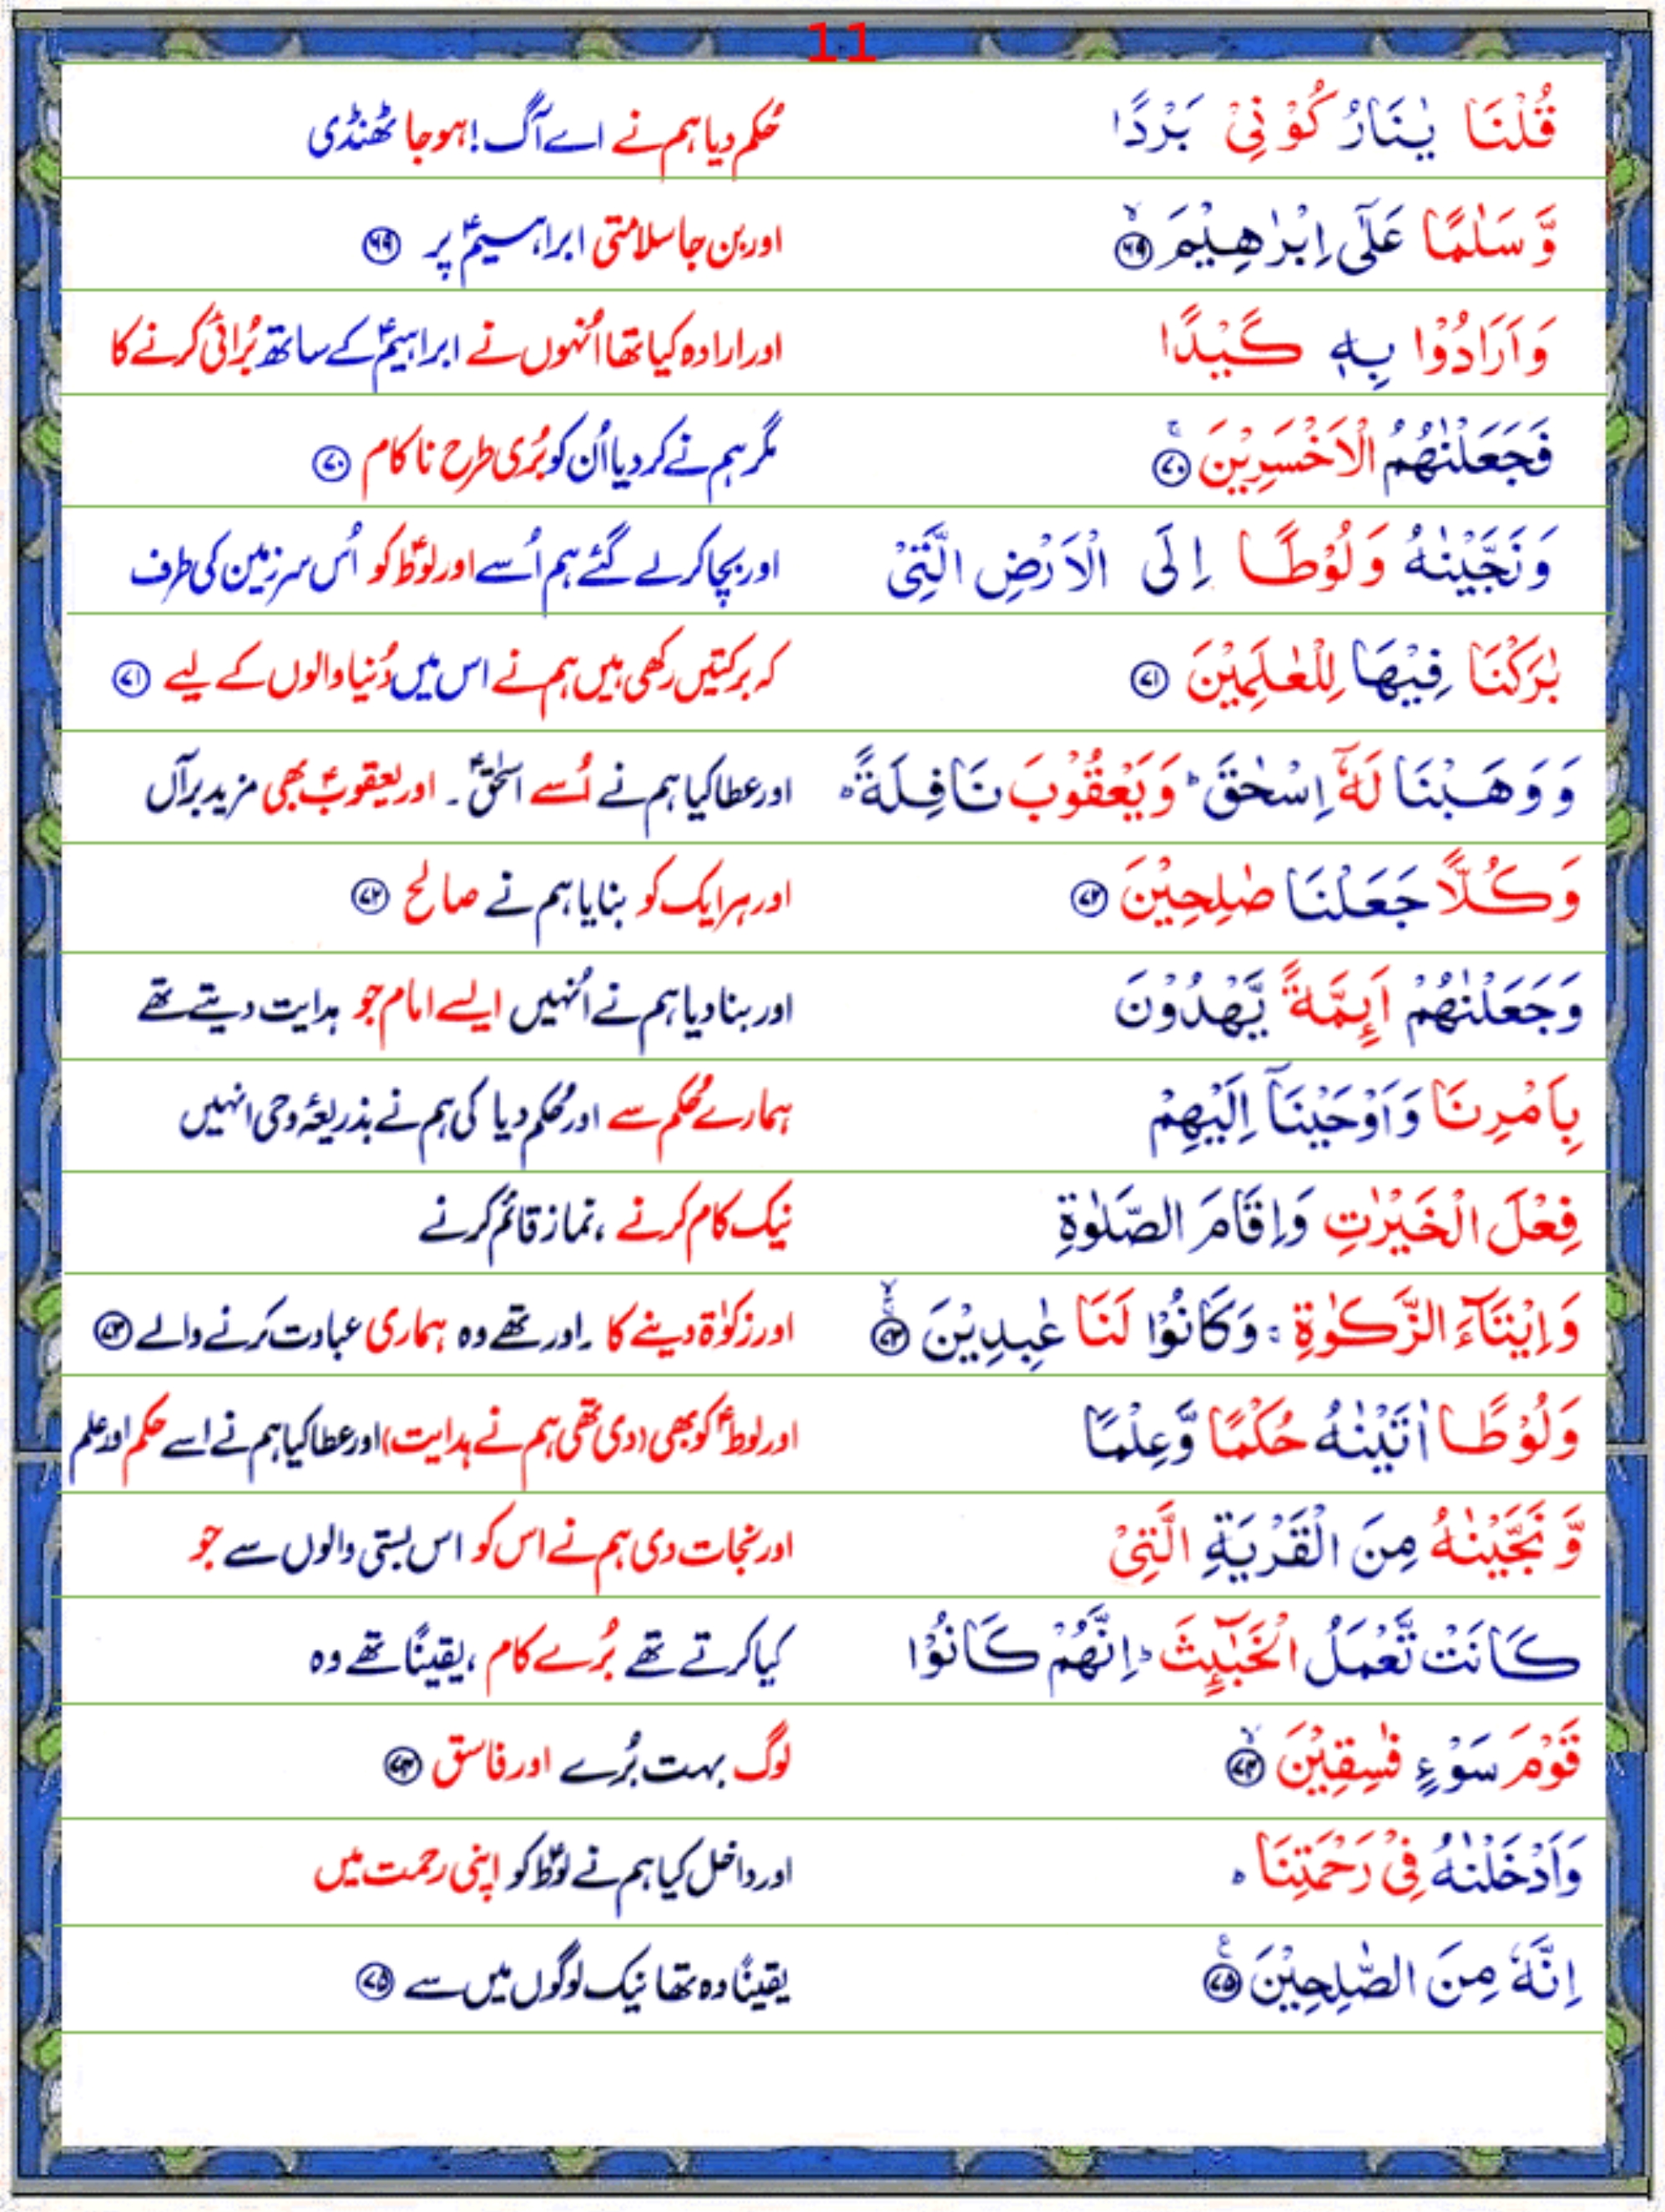 11
قُلْنَا يٰنَارُ كُوْنِيْ بَرْدًا حُکم دیا ہم نے اے آگ! ہوجا ٹھنڈی
وَّسَلٰمًا عَلٰٓى اِبْرٰهِيْمَ ۙ﴿۶۹﴾ اور بن جا سلامتی ابراہیمؑ پر ﴿۶۹﴾
وَاَرَادُوْا بِهٖ كَيْدًا اور ارادہ کیا تھا اُنہوں نے ابراہیمؑ کے ساتھ بُرائی کرنے کا
فَجَعَلْنٰهُمُ الْاَخْسَرِيْنَ ۚ﴿۷۰﴾ مگر ہم نے کر دیا اُن کو بُری طرح ناکام ﴿۷۰﴾
وَنَجَّيْنٰهُ وَلُوْطًا اِلَى الْاَرْضِ الَّتِيْ اور بچا کر لے گئے ہم اُسے اور لوطؑ کو اُس سرزمین کی طرف
بٰرَكْنَا فِيْهَا لِلْعٰلَمِيْنَ ﴿۷۱﴾ کہ برکتیں رکھی ہیں ہم نے اس میں دُنیا والوں کے لیے ﴿۷۱﴾
وَوَهَبْنَا لَهٗٓ اِسْحٰقَ ؕ وَيَعْقُوْبَ نَافِلَةً ؕ اور عطا کیا ہم نے اُسے اسحٰقؑ۔ اور یعقوبؑ بھی مزید برآں
وَكُلًّا جَعَلْنَا صٰلِحِيْنَ ﴿۷۲﴾ اور ہر ایک کو بنایا ہم نے صالح ﴿۷۲﴾
وَجَعَلْنٰهُمْ اَئِمَّةً يَّهْدُوْنَ اور بنا دیا ہم نے اُنہیں ایسے امام جو ہدایت دیتے تھے
بِاَمْرِنَا وَاَوْحَيْنَآ اِلَيْهِمْ ہمارے حُکم سے اور حُکم دیا کی ہم نے بذریعۂ وحی انہیں
فِعْلَ الْخَيْرٰتِ وَاِقَامَ الصَّلٰوةِ نیک کام کرنے ، نماز قائم کرنے
وَاِيْتَآءَ الزَّكٰوةِ ۚ وَكَانُوْا لَنَا عٰبِدِيْنَ ۙ﴿۷۳﴾ اور زکوٰۃ دینے کا۔ اور تھے وہ ہماری عبادت کرنے والے ﴿۷۳﴾
وَلُوْطًا اٰتَيْنٰهُ حُكْمًا وَّعِلْمًا اور لوطؑ کو بھی (دی تھی ہم نے ہدایت) اور عطا کیا ہم نے اسے حکم اور علم
وَّنَجَّيْنٰهُ مِنَ الْقَرْيَةِ الَّتِيْ اور نجات دی ہم نے اس کو اس بستی والوں سے جو
كَانَتْ تَّعْمَلُ الْخَبٰٓئِثَ ؕ اِنَّهُمْ كَانُوْا کیا کرتے تھے بُرے کام ، یقینًا تھے وہ
قَوْمَ سَوْءٍ فٰسِقِيْنَ ۙ﴿۷۴﴾ لوگ بہت بُرے اور فاسق ﴿۷۴﴾
وَاَدْخَلْنٰهُ فِيْ رَحْمَتِنَا ؕ اور داخل کیا ہم نے لوطؑ کو اپنی رحمت میں
اِنَّهٗ مِنَ الصّٰلِحِيْنَ ۧ﴿۷۵﴾ یقینًا وہ تھا نیک لوگوں میں سے ﴿۷۵﴾